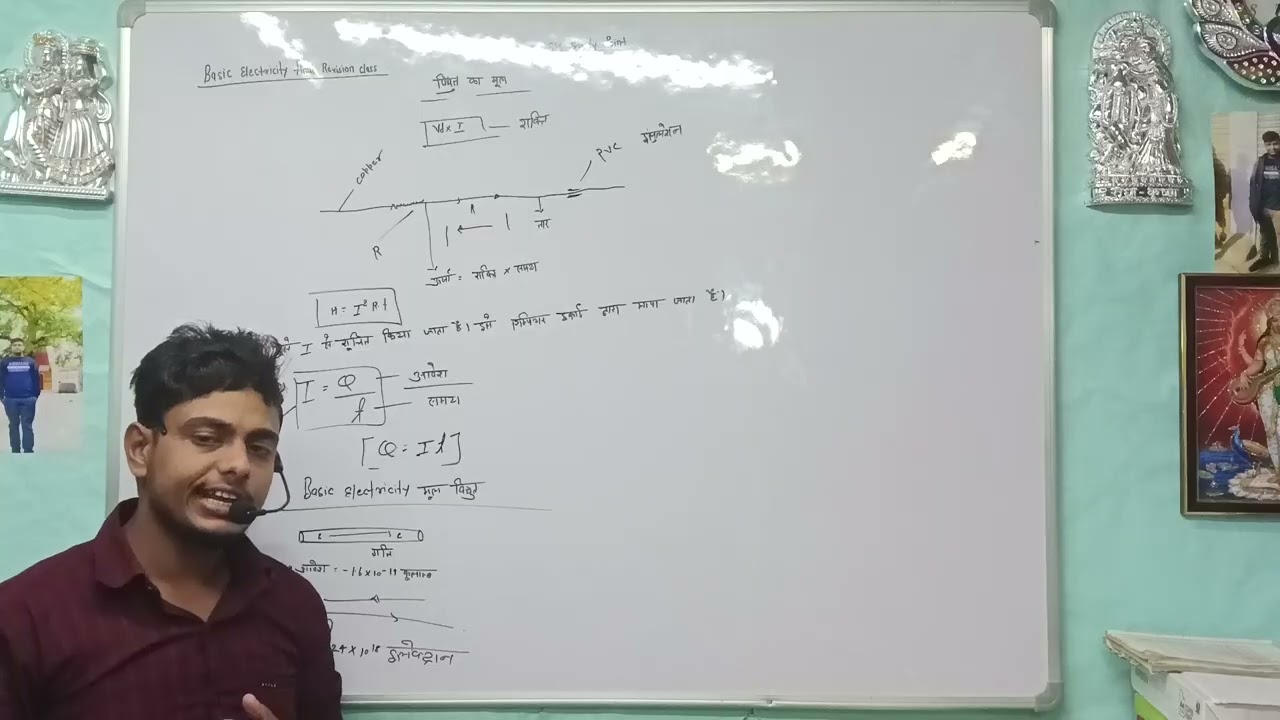 Basic Electricity Revision class
विधुत का मूल
V × I — शक्ति
copper
PVC इंसुलेशन
R
तार
ऊर्जा = शक्ति × समय
H = I² R t
I से सूचित किया जाता है। इसे इकाई द्वारा मापा जाता है।
I = Q / t
आवेश
समय
[Q = I t]
Basic Electricity मूल विधुत
e e
गति
आवेश = -1.6 × 10⁻¹⁹ कूलाम्ब
24 × 10¹⁸ इलेक्ट्रान